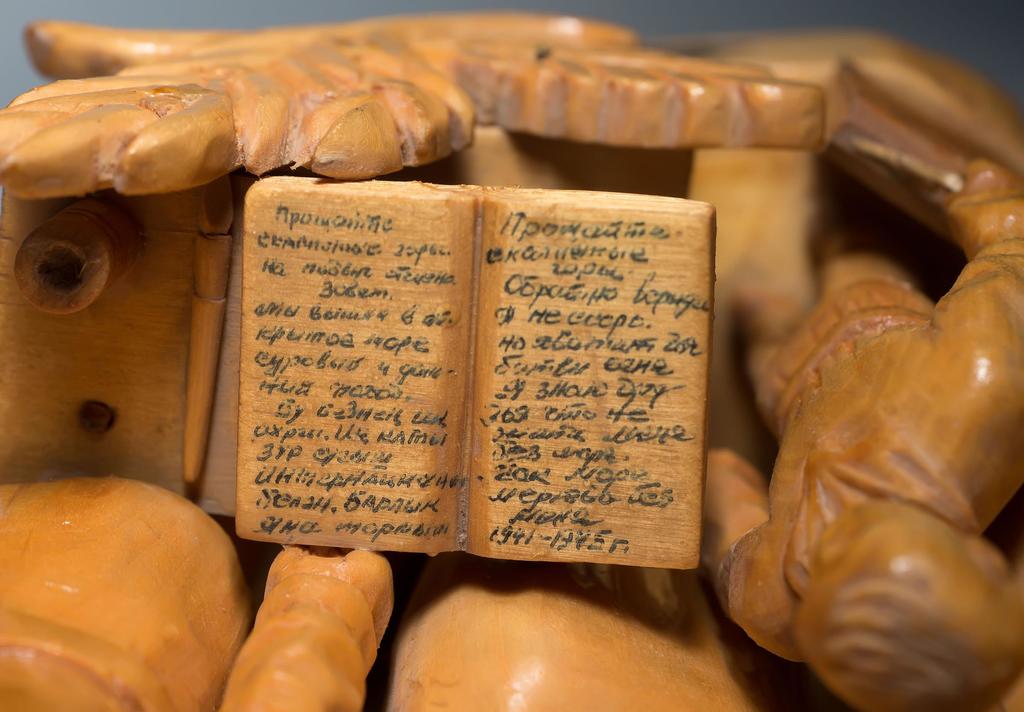 Прощайте
скалистые горы
на подвиг отчизна
Зовет.
Мы вышли в от-
крытое море
суровый и даль-
ный поход.
Бу безнең иң
ахры. Иң каты
зур сугыш
Интернационал
Барлык
Яңа тормыш
Прощайте
скалистые
горы.
Обратно вернусь
Я не скоро.
но хватит для
битвы огня
Я знаю дру
зья что не
мне
без моря.
как море
мертво без
меня
1941-1945 г.